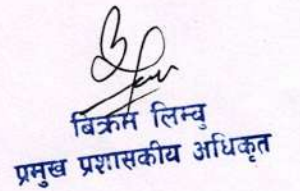 बिक्रम लिम्बु
प्रमुख प्रशासकीय अधिकृत